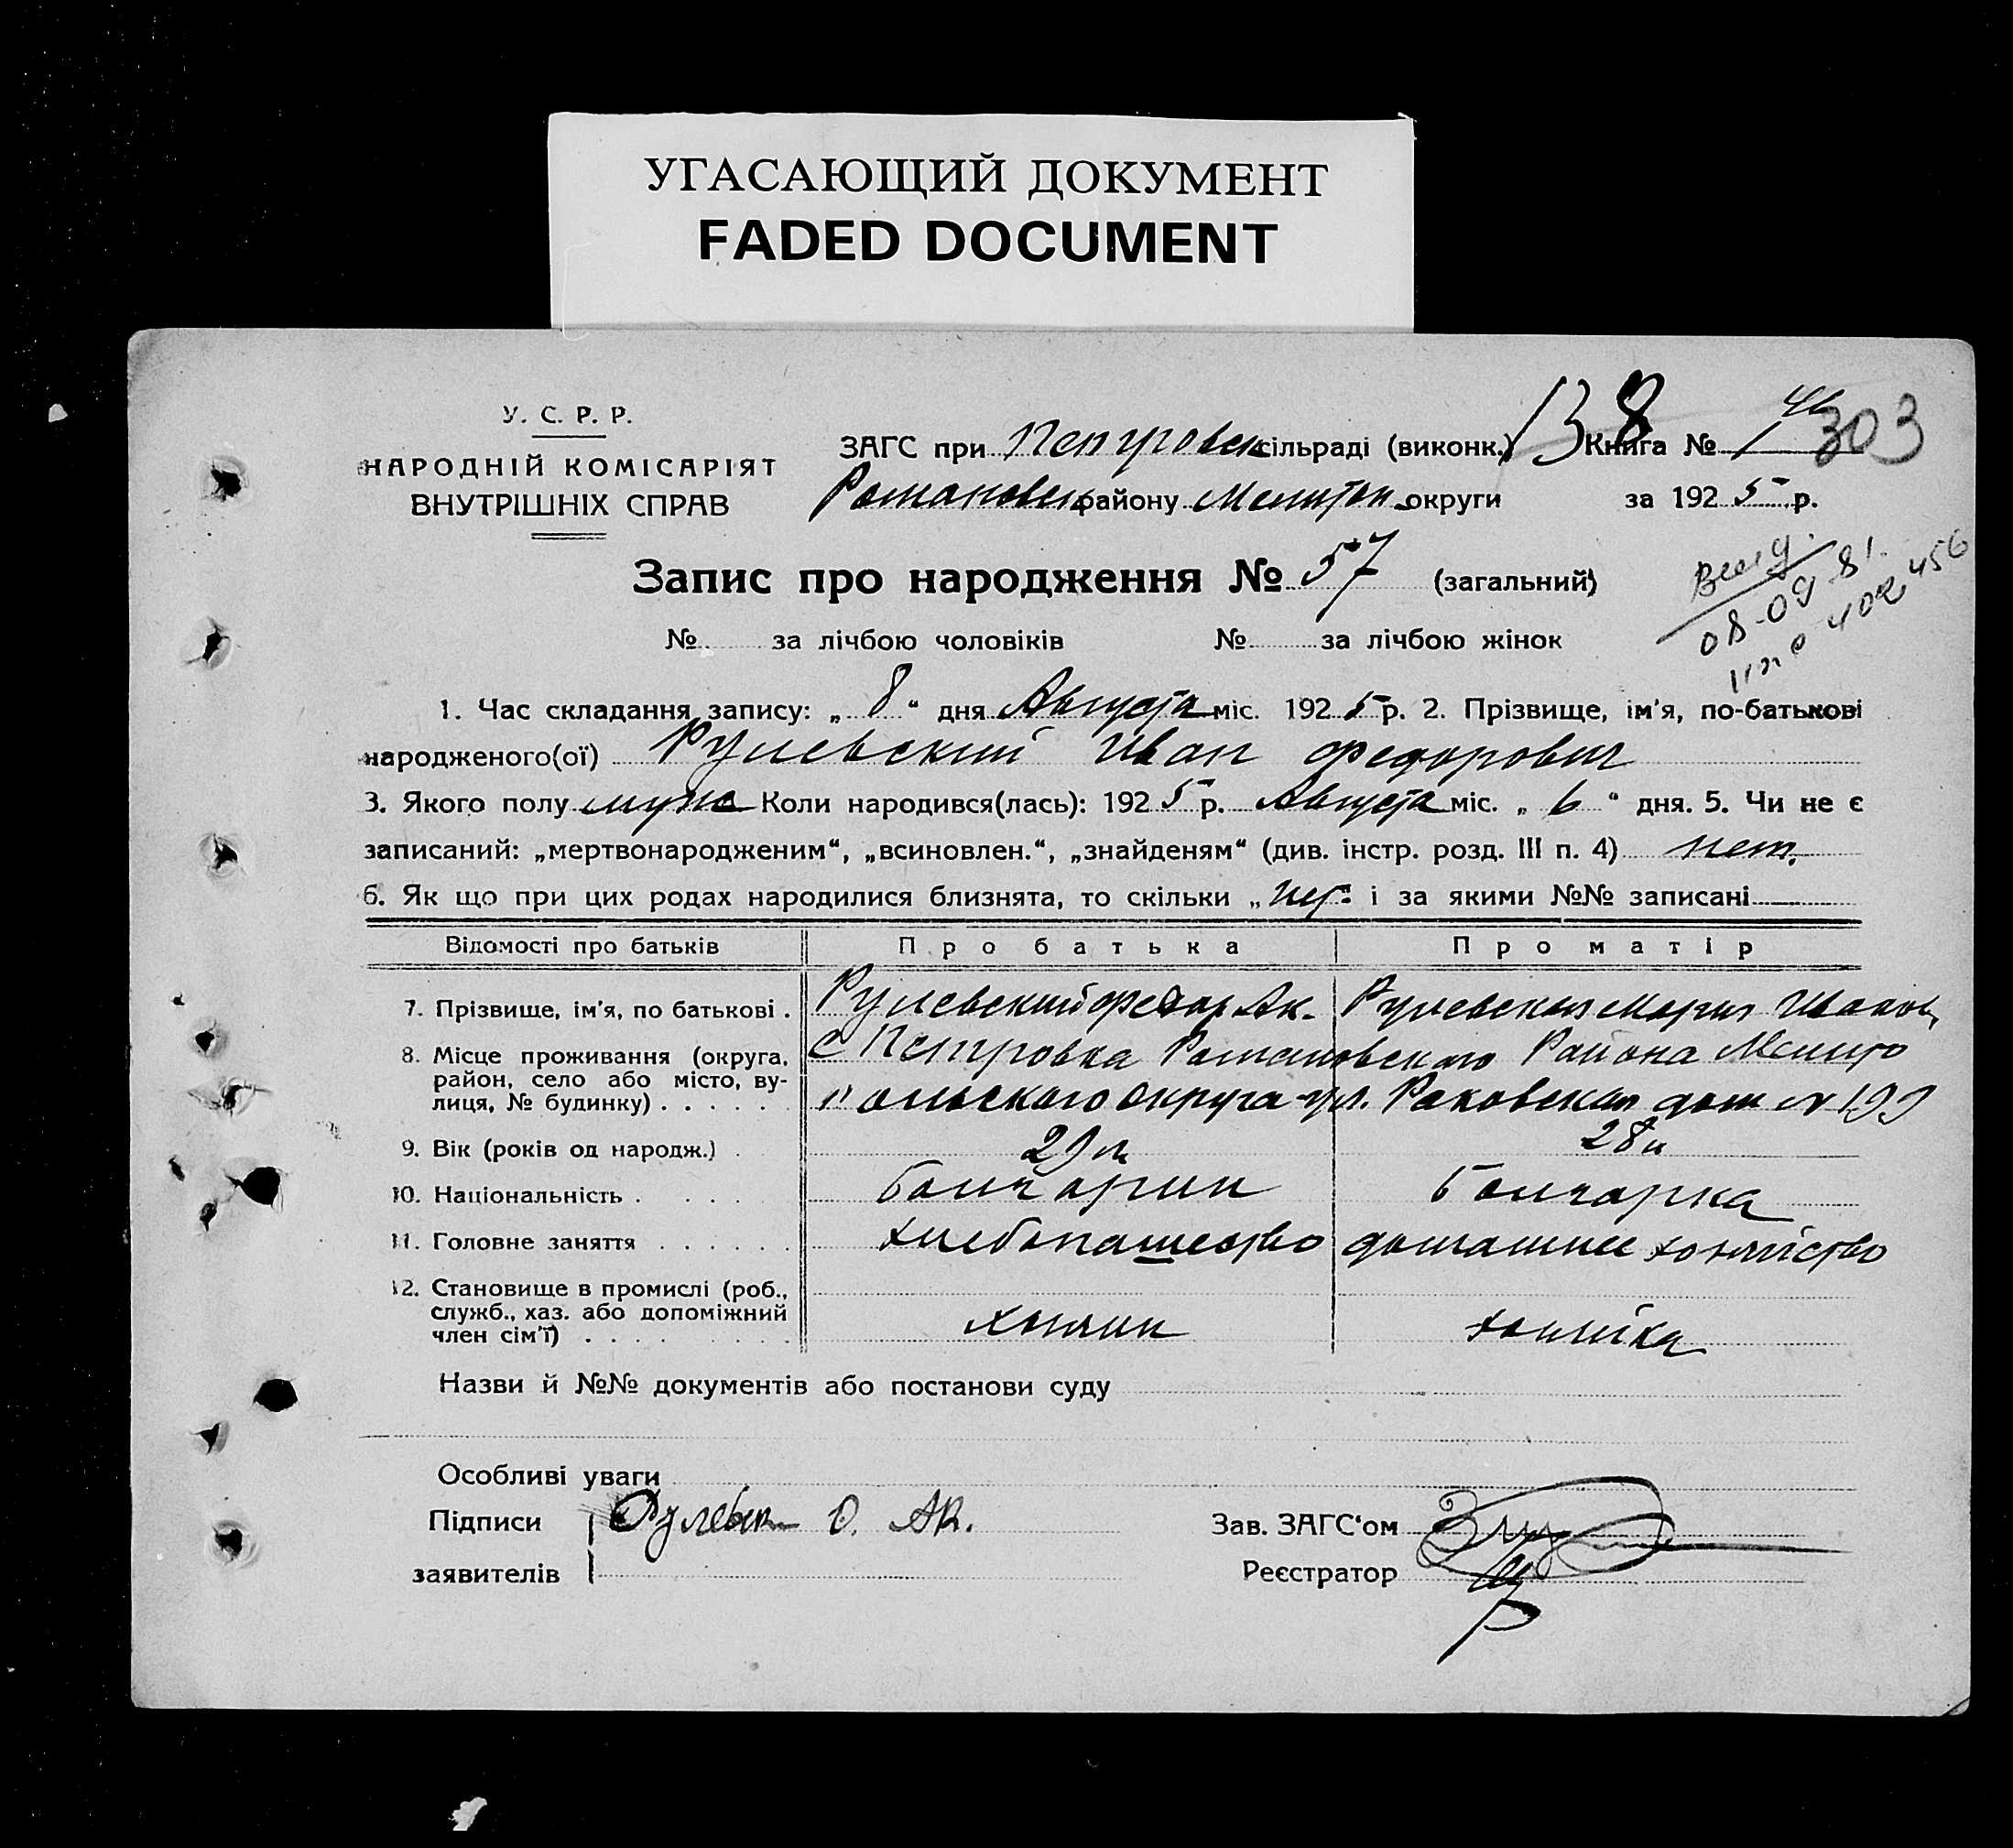 УГАСАЮЩИЙ ДОКУМЕНТ
FADED DOCUMENT
У. С. Р. Р.
НАРОДНІЙ КОМІСАРІЯТ
ВНУТРІШНІХ СПРАВ
ЗАГС при Петровск сільраді (виконк.) 138 Книга № 1 303
Романовск району Мелитоп округи за 1925 р.
Запис про народження № 57 (загальний)
№ за лічбою чоловіків № за лічбою жінок
08-09 81.
402456
1. Час складання запису: „8“ дня Августа міс. 1925 р. 2. Прізвище, ім'я, по-батькові
народженого(ої) Рулевский Иван Федорович
3. Якого полу муж Коли народився(лась): 1925 р. Августа міс. „6“ дня. 5. Чи не є
записаний: „мертвонародженим“, „всиновлен.“, „знайденям“ (див. інстр. розд. III п. 4) нет.
6. Як що при цих родах народилися близнята, то скільки „нет“ і за якими №№ записані
Відомості про батьків Про батька Про матір
7. Прізвище, ім'я, по батькові . Рулевский Федор Ак. Рулевская Мария Иванов
8. Місце проживання (округа, район, село або місто, вулиця, № будинку) . . . . . .
с Петровка Романовского Района Мелито
польского округа ул. Раковская дом № 199
9. Вік (років од народж.) . 29 л 28 л
10. Національність . . . . болгарин болгарка
11. Головне заняття . . . . . . хлебопашество домашнее хозяйство
12. Становище в промислі (роб.,
служб., хаз. або допоміжний
член сім'ї) . . . . . . . . . хозяин хозяйка
Назви й №№ документів або постанови суду
Особливі уваги
Підписи Рулевск Ф. Ак. Зав. ЗАГС'ом
заявителів Реєстратор